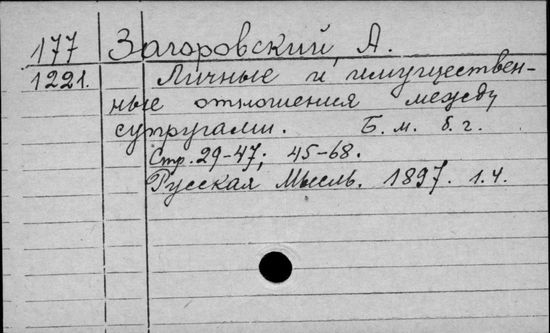 177 Загоровский, А.
1221. Личные и имуществен-
ные отношения между
супругами. Б. м. б. г.
Стр. 29-47; 45-68.
Русская Мысль. 1897. 1.4.